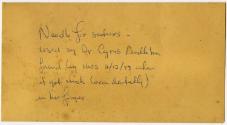 Needle for sutures -
used by Dr Cyrus
found by 11/12/79 when
it got stuck (accidentally)
in her finger